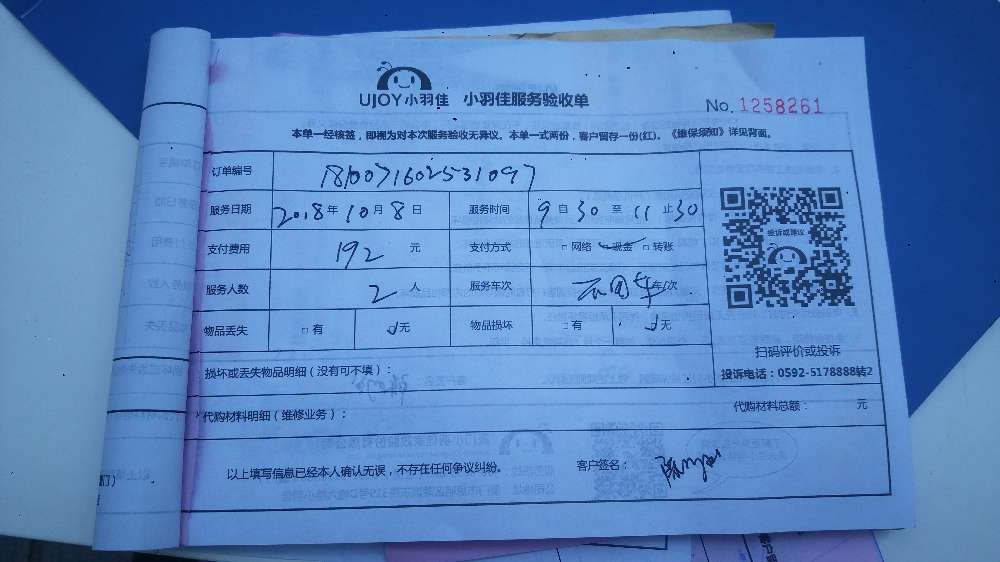 UJOY小羽佳 小羽佳服务验收单
No. 1258261
本单一经核签，即视为对本次服务验收无异议。本单一式两份，客户留存一份(红)。《维保须知》详见背面。
订单编号 1810071602531097
服务日期 2018年10月8日 服务时间 9自30至11止30
支付费用 192 元 支付方式 □网络 现金 □转账
投诉或建议
服务人数 2 人 服务车次 年/次
物品丢失 □有 无 物品损坏 □有 无
扫码评价或投诉
损坏或丢失物品明细（没有可不填）：
投诉电话：0592-5178888转2
代购材料明细（维修业务）： 代购材料总额： 元
以上填写信息已经本人确认无误，不存在任何争议纠纷。 客户签名：